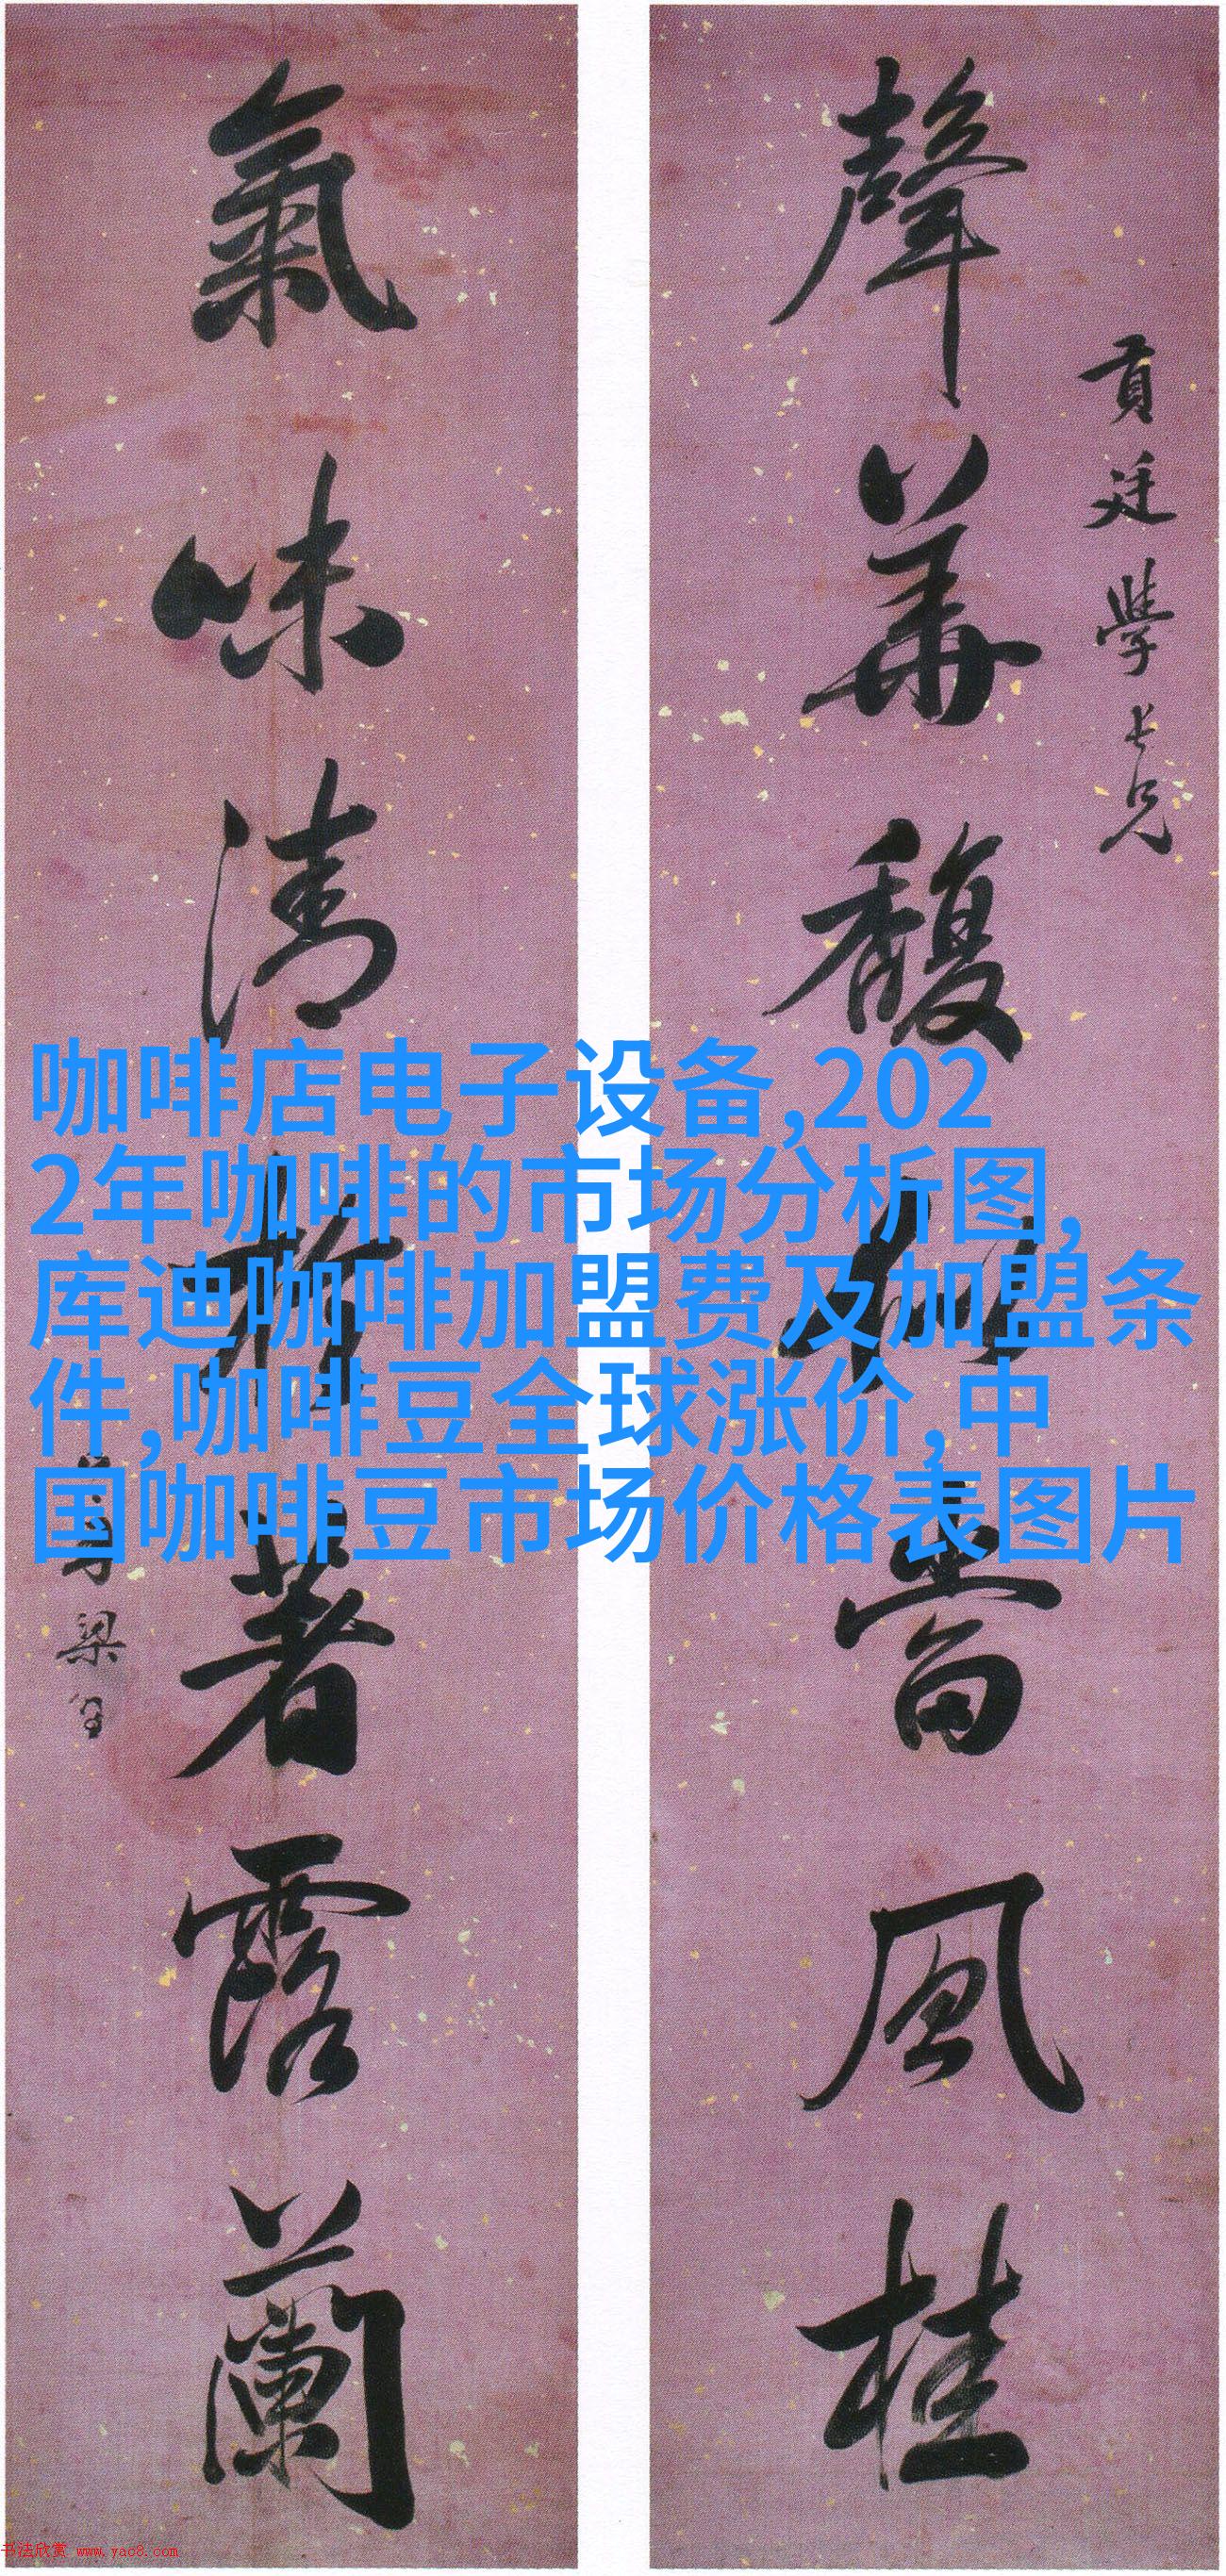 貢廷學長兄
聲華馥似當風桂
氣味清於著露蘭
梁
咖啡店电子设备,202
2年咖啡的市场分析图,
库迪咖啡加盟费及加盟条
件,咖啡豆全球涨价,中
国咖啡豆市场价格表图片
书法欣赏 www.yac8.com